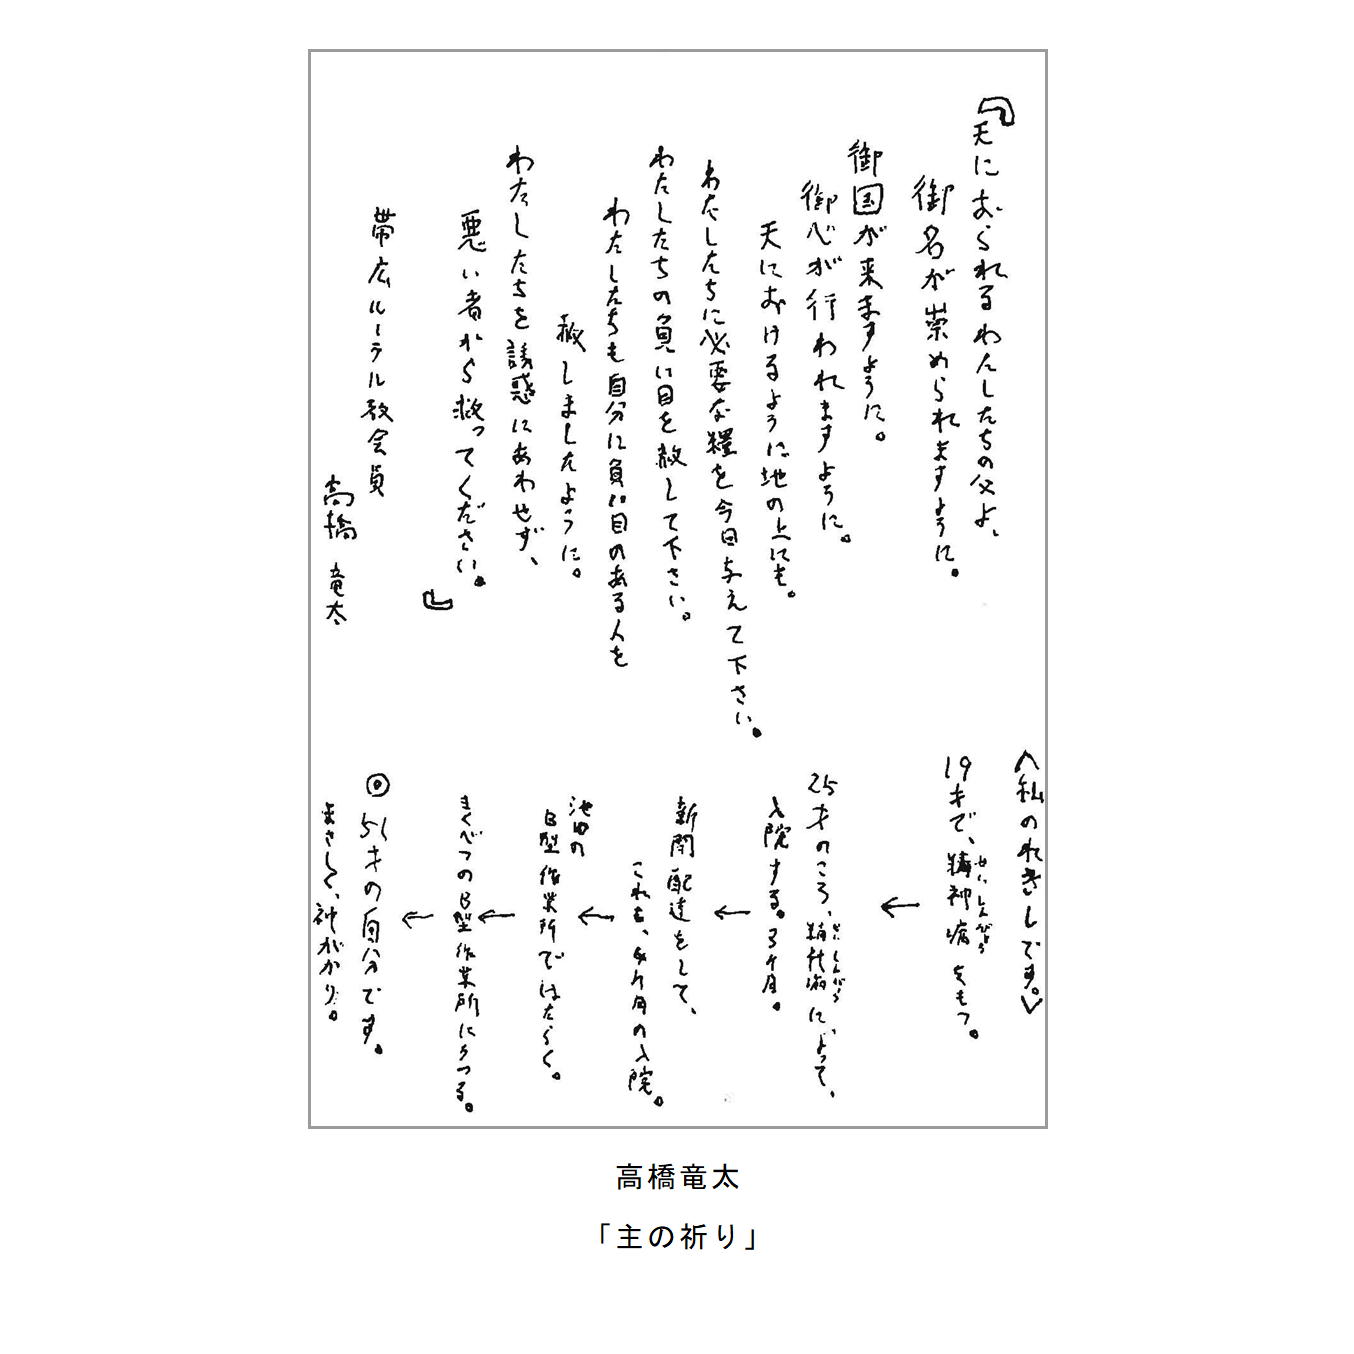 『天におられるわたしたちの父よ、
御名が崇められますように。
御国が来ますように。
御心が行われますように。
天におけるように地の上にも。
わたしたちに必要な糧を今日与えて下さい。
わたしたちの負い目を赦して下さい。
わたしたちも自分に負い目のある人を
赦しましたように。
わたしたちを誘惑にあわせず、
悪い者から救ってください。』
帯広ルーテル教会員
高橋 竜太
〈私のれきしです。〉
19才で、精神病をもつ。
せいしんびょう
←
25才のころ、精神病によって、
せいしんびょう
入院する。3ケ月。
←
新聞配達をして、
これも、4ケ月の入院。
←
池田の
B型作業所ではたらく。
←
まくべつのB型作業所にうつる。
←
◎51才の自分です。
まさしく、神がかり。
高橋竜太
「主の祈り」